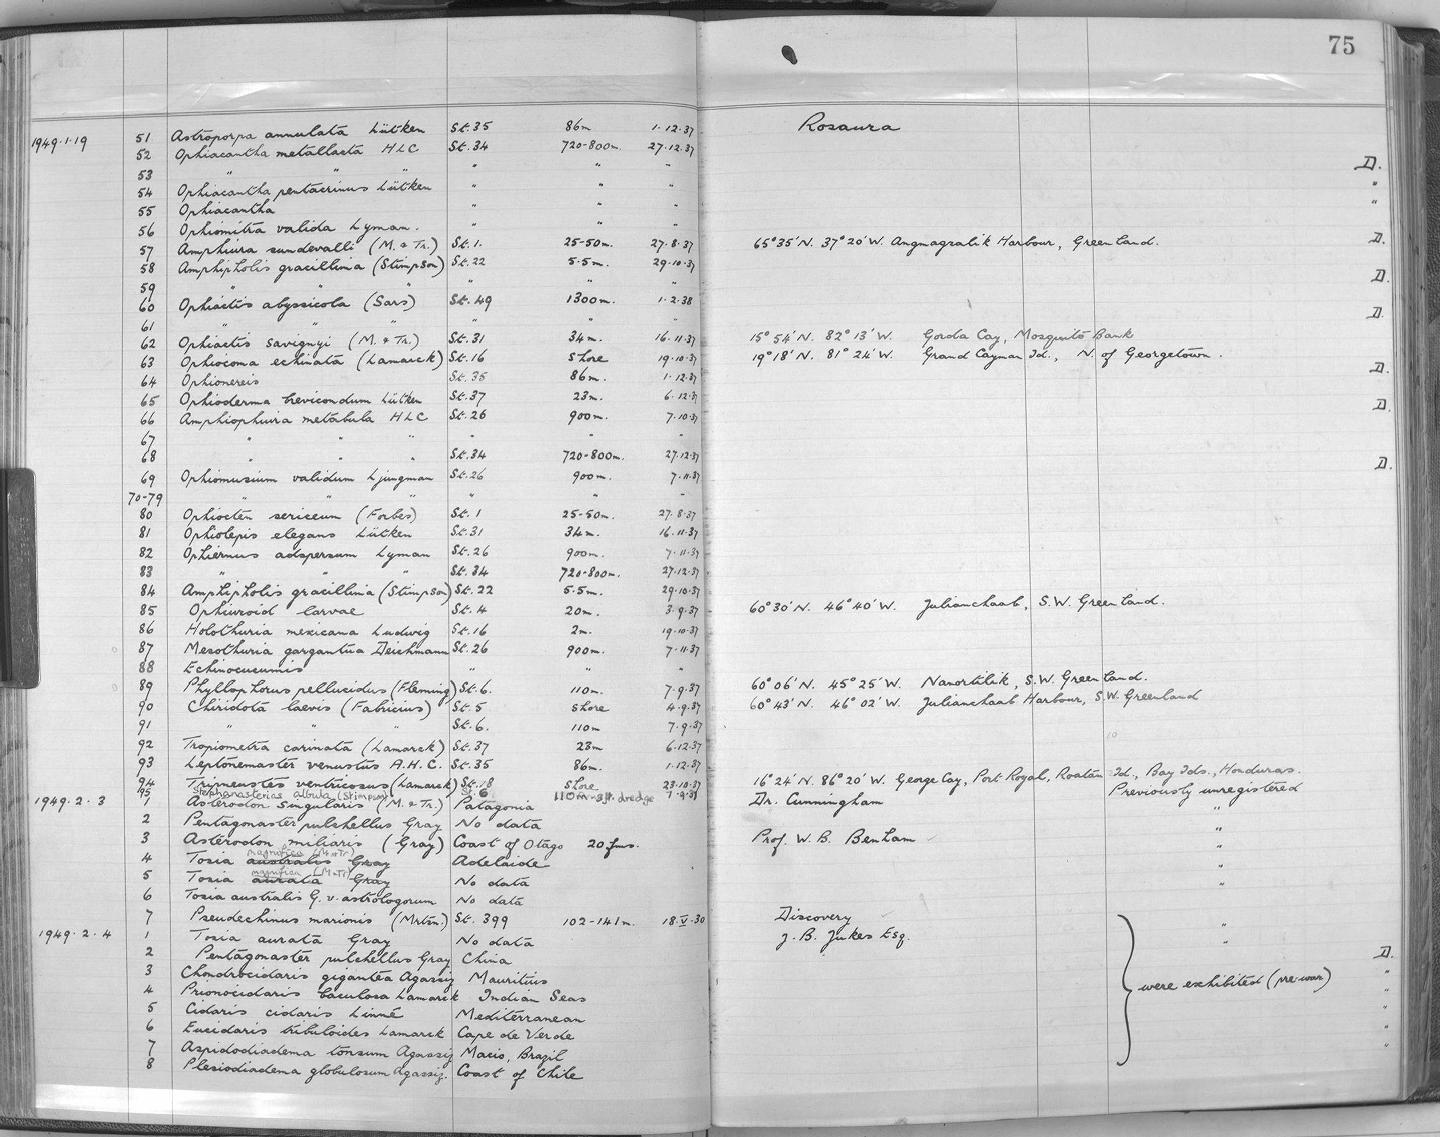 75
1949.1.19 51 Astroporpa annulata Lütken St.35 86m 1.12.37 Rosaura
52 Ophiacantha metallacta HLC St.34 720-800m. 27.12.37
53 " " " " " " D.
54 Ophiacantha pentacrinus Lütken " " " "
55 Ophiacantha " " " "
56 Ophiomitra valida Lyman. " " "
57 Amphiura sundevalli (M. & Tr.) St.1. 25-50m. 27.8.37 65°35'N. 37°20'W. Angmagralik Harbour, Greenland. D.
58 Amphipholis gracillima (Stimpson) St.22 5.5m. 29.10.37
59 " " " " " " D.
60 Ophiactis abyssicola (Sars) St.49 1300m. 1.2.38
61 " " " " " " D.
62 Ophiactis savignyi (M. & Tr.) St.31 34m. 16.11.37 15°54'N. 82°13'W. Gorda Cay, Mosquito Bank
63 Ophiocoma echinata (Lamarck) St.16 Shore 19.10.37 19°18'N. 81°24'W. Grand Cayman Id., N. of Georgetown.
64 Ophionereis St.35 86m. 1.12.37 D.
65 Ophioderma brevicondum Lütken St.37 23m. 6.12.37
66 Amphiophiura metabula HLC St.26 900m. 7.10.37 D.
67 " " " " " "
68 " " " St.34 720-800m. 27.12.37
69 Ophiomusium validum Ljungman St.26 900m. 7.11.37 D.
70-79 " " " " " "
80 Ophiocten sericeum (Forbes) St.1 25-50m. 27.8.37
81 Ophiolepis elegans Lütken St.31 34m. 16.11.37
82 Ophiernus adspersum Lyman St.26 900m. 7.11.37
83 " " " St.34 720-800m. 27.12.37
84 Amphipholis gracillima (Stimpson) St.22 5.5m. 29.10.37
85 Ophiuroid larvae St.4 20m. 3.9.37 60°30'N. 46°40'W. Julianehaab, S.W. Greenland.
86 Holothuria mexicana Ludwig St.16 2m. 19.10.37
87 Mesothuria gargantua Deichmann St.26 900m. 7.11.37
88 Echinocucumis " " "
89 Phyllophorus pellucidus (Fleming) St.6. 110m. 7.9.37 60°06'N. 45°25'W. Nanortilik, S.W. Greenland.
90 Chiridota laevis (Fabricius) St.5 Shore 4.9.37 60°43'N. 46°02'W. Julianehaab Harbour, S.W. Greenland
91 " " " St.6. 110m 7.9.37
92 Tropiometra carinata (Lamarck) St.37 23m 6.12.37
93 Leptonemaster venustus A.H.C. St.35 86m. 1.12.37
94 Tripneustes ventricosus (Lamarck) St.18 Shore 23.10.37 16°24'N. 86°20'W. George Cay, Port Royal, Roatán Id., Bay Ids., Honduras.
95 Stephanasterias albula (Stimpson) St.6 110m-3ft. dredge 7.9.37
1949.2.3 1 Asterodon singularis (M. & Tr.) Patagonia Dr. Cunningham Previously unregistered
2 Pentagonaster pulchellus Gray No data "
3 Asterodon miliaris (Gray) Coast of Otago 20 fms. Prof. W. B. Benham "
magnifica (M & Tr)
4 Tosia australis Gray Adelaide "
magnifica (M & Tr)
5 Tosia aurata Gray No data "
6 Tosia australis G. v. astrologorum No data "
7 Pseudechinus marionis (Mrtsn.) St. 399 102-141m. 18.V.30 Discovery "
1949.2.4 1 Tosia aurata Gray No data J. B. Jukes Esq. "
2 Pentagonaster pulchellus Gray China D.
3 Chondrocidaris gigantea Agassiz Mauritius "
4 Prionocidaris baculosa Lamarck Indian Seas were exhibited (pre-war) "
5 Cidaris cidaris Linné Mediterranean "
6 Eucidaris tribuloides Lamarck Cape de Verde "
7 Aspidodiadema tonsum Agassiz Macio, Brazil "
8 Plesiodiadema globulosum Agassiz. Coast of Chile